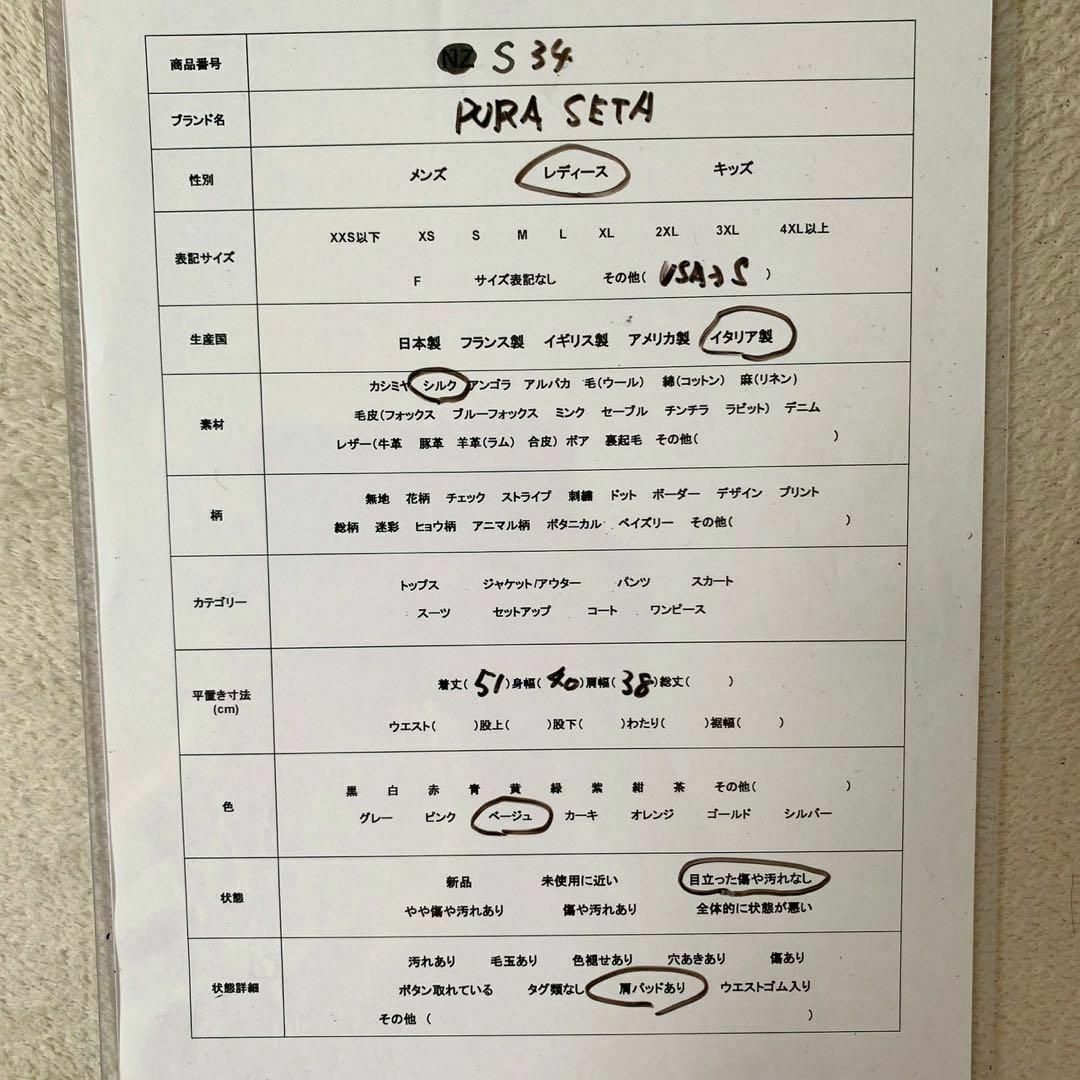 商品番号 NZ S 34
ブランド名 PURA SETA
性別 メンズ レディース キッズ
表記サイズ
XXS以下 XS S M L XL 2XL 3XL 4XL以上
F サイズ表記なし その他( USA→S )
生産国 日本製 フランス製 イギリス製 アメリカ製 イタリア製
素材
カシミヤ シルク アンゴラ アルパカ 毛(ウール) 綿(コットン) 麻(リネン)
毛皮(フォックス ブルーフォックス ミンク セーブル チンチラ ラビット) デニム
レザー(牛革 豚革 羊革(ラム) 合皮) ボア 裏起毛 その他( )
柄
無地 花柄 チェック ストライプ 刺繍 ドット ボーダー デザイン プリント
総柄 迷彩 ヒョウ柄 アニマル柄 ボタニカル ペイズリー その他( )
カテゴリー
トップス ジャケット/アウター パンツ スカート
スーツ セットアップ コート ワンピース
平置き寸法
(cm)
着丈( 51 )身幅( 40 )肩幅( 38 )総丈( )
ウエスト( )股上( )股下( )わたり( )裾幅( )
色
黒 白 赤 青 黄 緑 紫 紺 茶 その他( )
グレー ピンク ベージュ カーキ オレンジ ゴールド シルバー
状態
新品 未使用に近い 目立った傷や汚れなし
やや傷や汚れあり 傷や汚れあり 全体的に状態が悪い
状態詳細
汚れあり 毛玉あり 色褪せあり 穴あきあり 傷あり
ボタン取れている タグ類なし 肩パッドあり ウエストゴム入り
その他 ( )